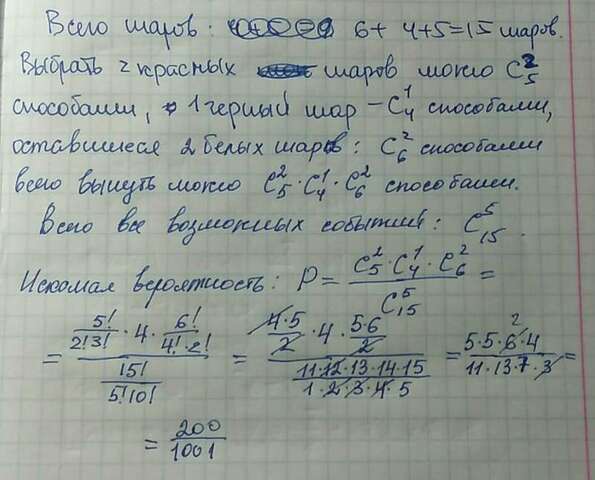 Всего шаров: 6+4+5=15 шаров.
Выбрать 2 красных шаров можно C₅²
способами, 1 черный шар – C₄¹ способами,
оставшиеся 2 белых шаров: C₆² способами
всего вынуть можно C₅²·C₄¹·C₆² способами.
Всего все возможных событий: C₁₅⁵.
Искомая вероятность: P = (C₅²·C₄¹·C₆²)/C₁₅⁵ =
= (5!/(2!3!)·4·6!/(4!·2!))/(15!/(5!10!)) = ((4·5)/2·4·(5·6)/2)/((11·12·13·14·15)/(1·2·3·4·5)) = (5·5·6·4)/(11·13·7·3) 2 =
= 200/1001